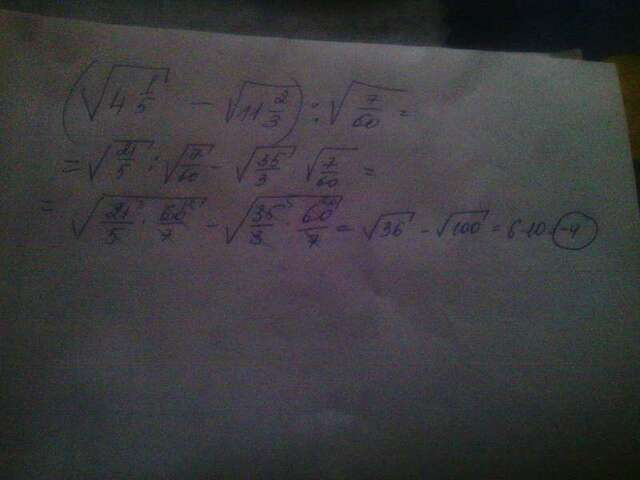 (√4 1/5 - √11 2/3) : √7/60 =
= √21/5 : √7/60 - √35/3 : √7/60 =
= √21/5 · 60/7 - √35/3 · 60/7 = √36 - √100 = 6-10 = -4